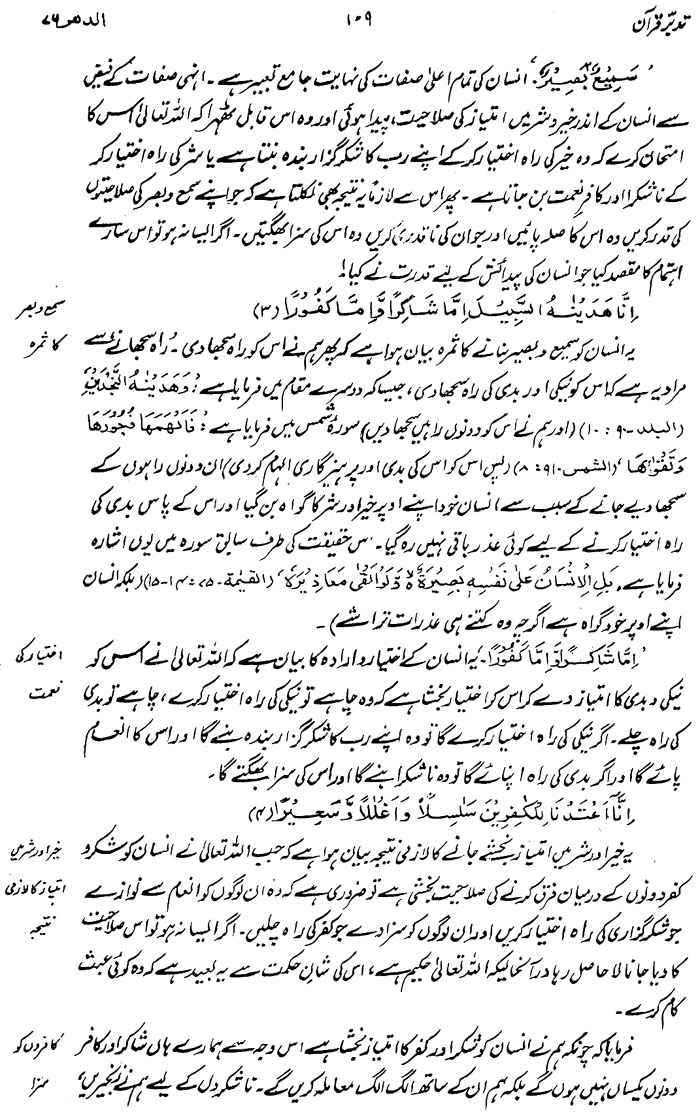 تدبّرِ قرآن ۱۰۹ الدھر ۷۶
’سَمِیْعٌۢ بَصِیْرٌ‘، انسان کی تمام اعلیٰ صفات کی نہایت جامع تعبیر ہے۔ انہی صفات کے فیض
سے انسان کے اندر خیر و شر میں امتیاز کی صلاحیت پیدا ہوئی اور وہ اس قابل ٹھہرا کہ اللہ تعالیٰ اس کا
امتحان کرے کہ وہ خیر کی راہ اختیار کر کے اپنے رب کا شکر گزار بندہ بنتا ہے یا شر کی راہ اختیار کر
کے ناشکرا اور کافرِ نعمت بن جاتا ہے۔ پھر اس سے لازماً یہ نتیجہ بھی نکلتا ہے کہ جو اپنے سمع و بصر کی صلاحیتوں
کی قدر کریں وہ اس کا صلہ پائیں اور جو ان کی ناقدری کریں وہ اس کی سزا بھگتیں۔ اگر ایسا نہ ہو تو اس سارے
اہتمام کا مقصد کیا جو انسان کی پیدائش کے لیے قدرت نے کیا!
اِنَّا ھَدَیْنٰہُ السَّبِیْلَ اِمَّا شَاکِرًا وَّاِمَّا کَفُوْرًا (۳)
سمع و بصر
کا ثمرہ
یہ انسان کو سمیع و بصیر بنانے کا ثمرہ بیان ہوا ہے کہ پھر ہم نے اس کو راہ سجھا دی۔ ’راہ سجھانے‘ سے
مراد یہ ہے کہ اس کو نیکی اور بدی کی راہ سجھا دی، جیسا کہ دوسرے مقام میں فرمایا ہے: ’وَھَدَیْنٰہُ النَّجْدَیْنِ‘
(البلد-۹۰: ۱۰) (اور ہم نے اس کو دونوں راہیں سجھا دیں) سورۂ شمس میں فرمایا ہے: ’فَاَلْھَمَھَا فُجُوْرَھَا
وَتَقْوٰىھَا‘ (الشمس-۹۱: ۸) (پس اس کو اس کی بدی اور پرہیزگاری الہام کر دی) ان دونوں راہوں کے
سجھا دیے جانے کے سبب سے انسان خود اپنے اوپر خیر اور شر کا گواہ بن گیا اور اس کے پاس بدی کی
راہ اختیار کرنے کے لیے کوئی عذر باقی نہیں رہ گیا۔ اس حقیقت کی طرف سابق سورہ میں یوں اشارہ
فرمایا ہے، ’بَلِ الْاِنْسَانُ عَلٰی نَفْسِہٖ بَصِیْرَۃٌ ہ وَّلَوْ اَلْقٰی مَعَاذِیْرَہٗ‘ (القیٰمۃ-۷۵: ۱۴-۱۵) (بلکہ انسان
اپنے اوپر خود گواہ ہے اگرچہ وہ کتنے ہی عذرات تراشے)۔
اختیار کی
نعمت
’اِمَّا شَاکِرًا وَّاِمَّا کَفُوْرًا‘۔ یہ انسان کے اختیار و ارادہ کا بیان ہے کہ اللہ تعالیٰ نے اس کو
نیکی و بدی کا امتیاز دے کر اس کو اختیار بخشا ہے کہ وہ چاہے تو نیکی کی راہ اختیار کرے، چاہے تو بدی
کی راہ چلے۔ اگر نیکی کی راہ اختیار کرے گا تو وہ اپنے رب کا شکر گزار بندہ بنے گا اور اس کا انعام
پائے گا اور اگر بدی کی راہ اپنائے گا تو وہ ناشکرا بنے گا اور اس کی سزا بھگتے گا۔
اِنَّآ اَعْتَدْنَا لِلْکٰفِرِیْنَ سَلٰسِلَا۟ وَاَغْلٰلًا وَّسَعِیْرًا (۴)
خیر اور شر میں
امتیاز کا لازمی
نتیجہ
یہ خیر اور شر میں امتیاز بخشے جانے کا لازمی نتیجہ بیان ہوا ہے کہ جب اللہ تعالیٰ نے انسان کو شکر و
کفر دونوں کے درمیان فرق کرنے کی صلاحیت بخشی ہے تو ضروری ہے کہ وہ ان لوگوں کو انعام سے نوازے
جو شکر گزاری کی راہ اختیار کریں اور ان لوگوں کو سزا دے جو کفر کی راہ چلیں۔ اگر ایسا نہ ہو تو اس صلاحیت
کا دیا جانا لا حاصل رہا درآنحالیکہ اللہ تعالیٰ حکیم ہے، اس کی شانِ حکمت سے یہ بعید ہے کہ وہ کوئی عبث
کام کرے۔
کافروں کو
سزا
فرمایا کہ چونکہ ہم نے انسان کو شکر اور کفر کا امتیاز بخشا ہے اس وجہ سے ہمارے ہاں شاکر اور کافر
دونوں یکساں نہیں ہوں گے بلکہ ہم ان کے ساتھ الگ الگ معاملہ کریں گے۔ ناشکروں کے لیے ہم نے زنجیریں،